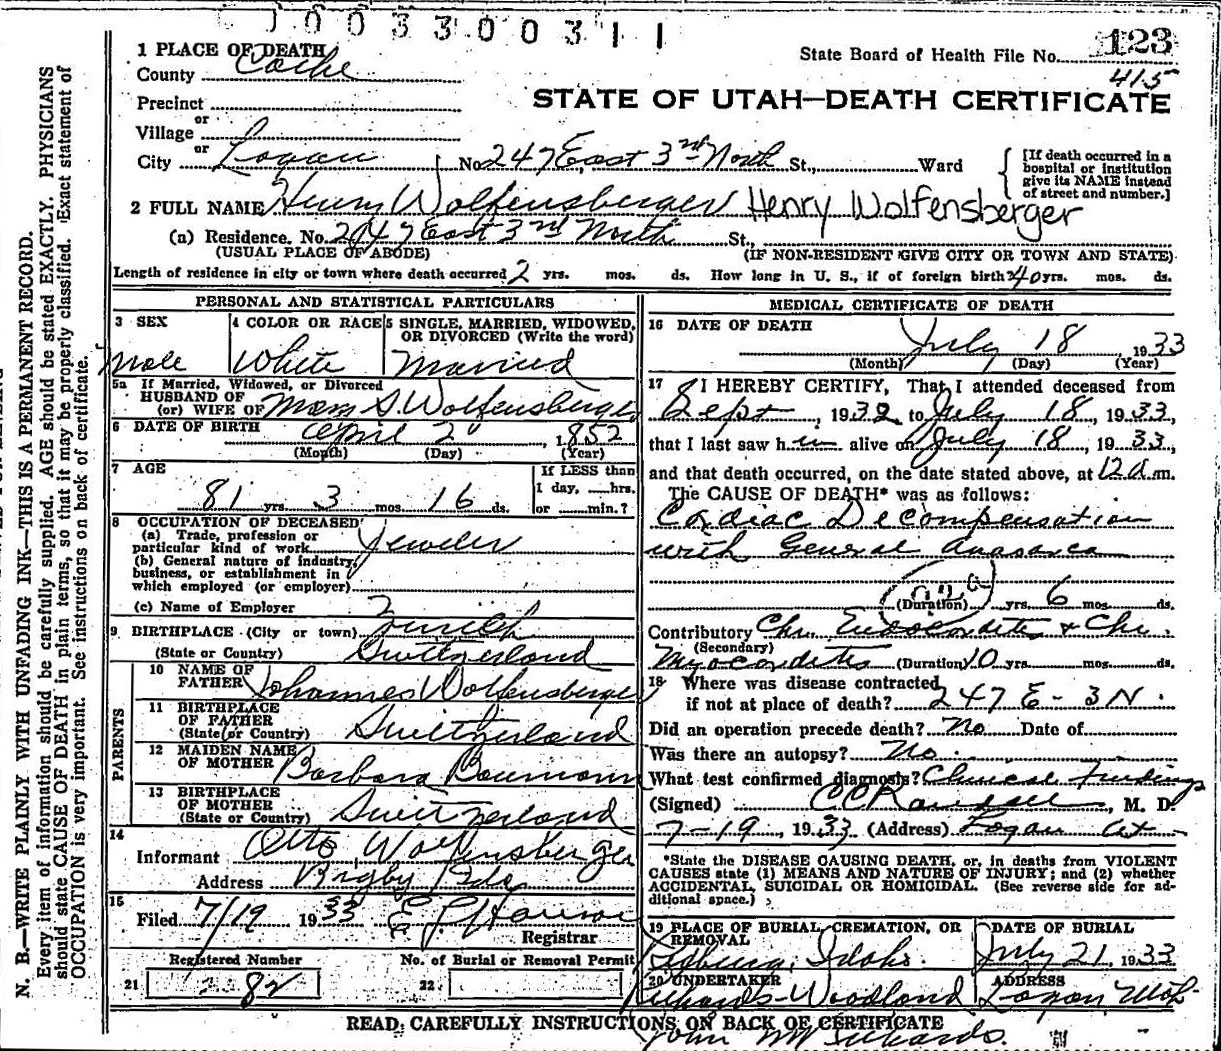 1003300311
State Board of Health File No. 123
415
STATE OF UTAH—DEATH CERTIFICATE
1 PLACE OF DEATH
County Cache
Precinct
or
Village
or
City Logan No. 247 East 3rd North St., Ward
[If death occurred in a hospital or institution give its NAME instead of street and number.]
2 FULL NAME Henry Wolfensberger Henry Wolfensberger
(a) Residence. No. 247 East 3rd North St.,
(USUAL PLACE OF ABODE) (IF NON-RESIDENT GIVE CITY OR TOWN AND STATE)
Length of residence in city or town where death occurred 2 yrs. mos. ds. How long in U. S., if of foreign birth 40 yrs. mos. ds.
PERSONAL AND STATISTICAL PARTICULARS
3 SEX
Male
4 COLOR OR RACE
White
5 SINGLE, MARRIED, WIDOWED, OR DIVORCED (Write the word)
Married
5a If Married, Widowed, or Divorced
HUSBAND OF
(or) WIFE OF S. Wolfensberger
6 DATE OF BIRTH April 2 1852
(Month) (Day) (Year)
7 AGE
81 yrs. 3 mos. 16 ds.
If LESS than
1 day, hrs.
or min.?
8 OCCUPATION OF DECEASED
(a) Trade, profession or
particular kind of work Jeweler
(b) General nature of industry,
business, or establishment in
which employed (or employer)
(c) Name of Employer
9 BIRTHPLACE (City or town) Zurich
(State or Country) Switzerland
PARENTS
10 NAME OF
FATHER Johannes Wolfensberger
11 BIRTHPLACE
OF FATHER
(State or Country) Switzerland
12 MAIDEN NAME
OF MOTHER Barbara Baumann
13 BIRTHPLACE
OF MOTHER
(State or Country) Switzerland
14
Informant Otto Wolfensberger
Address Rigby Ida
15
Filed 7/19 1933
Registrar
Registered Number No. of Burial or Removal Permit
21 82 22
MEDICAL CERTIFICATE OF DEATH
16 DATE OF DEATH
July 18 1933
(Month) (Day) (Year)
17 I HEREBY CERTIFY, That I attended deceased from
Sept , 1932, to July 18, 1933,
that I last saw him alive on July 18, 1933,
and that death occurred, on the date stated above, at 12 a.m.
The CAUSE OF DEATH* was as follows:
Cardiac Decompensation
with General Anasarca
(Duration) yrs. 6 mos. ds.
Contributory Chr. Endocarditis & Chr.
(Secondary)
Myocarditis (Duration) 10 yrs. mos. ds.
18 Where was disease contracted
if not at place of death? 247 E - 3 N.
Did an operation precede death? No Date of
Was there an autopsy? No.
What test confirmed diagnosis? Clinical Findings
(Signed) C C Randall, M. D.
7-19, 1933 (Address) Logan Ut
*State the DISEASE CAUSING DEATH, or, in deaths from VIOLENT
CAUSES state (1) MEANS AND NATURE OF INJURY; and (2) whether
ACCIDENTAL, SUICIDAL OR HOMICIDAL. (See reverse side for ad-
ditional space.)
19 PLACE OF BURIAL, CREMATION, OR
REMOVAL
Idaho.
DATE OF BURIAL
July 21, 1933
20 UNDERTAKER
Richards-Woodland
ADDRESS
Logan Utah
READ CAREFULLY INSTRUCTIONS ON BACK OF CERTIFICATE
John M Richards.
N. B.—WRITE PLAINLY WITH UNFADING INK—THIS IS A PERMANENT RECORD.
Every item of information should be carefully supplied. AGE should be stated EXACTLY. PHYSICIANS
should state CAUSE OF DEATH in plain terms, so that it may be properly classified. Exact statement of
OCCUPATION is very important. See instructions on back of certificate.